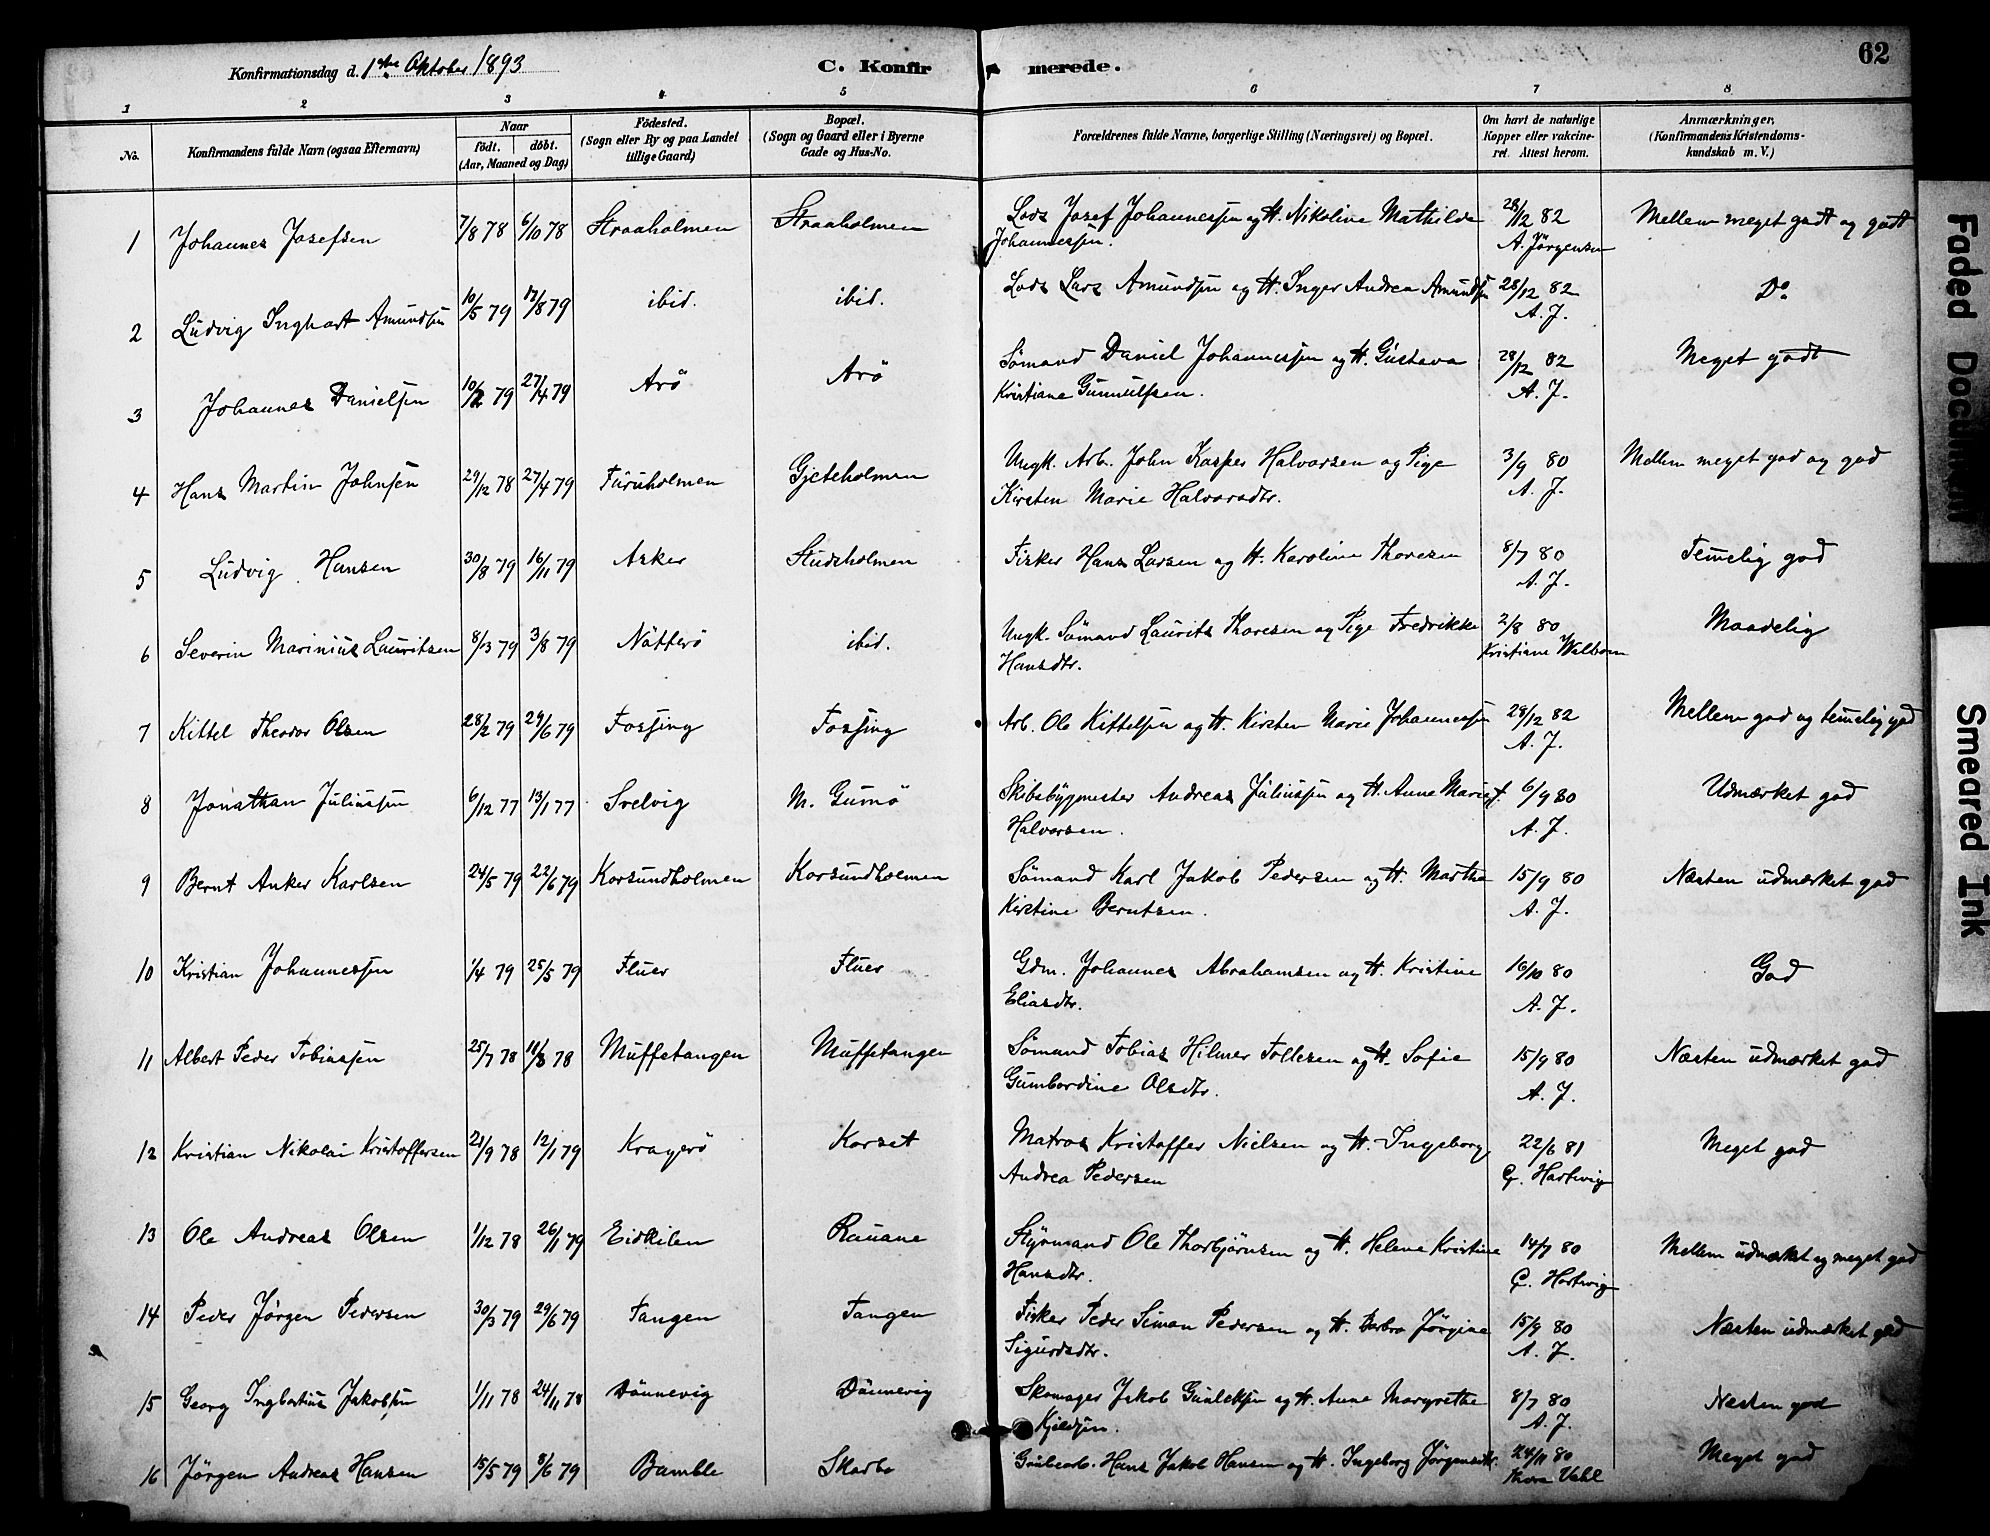 Konfirmationsdag d. 1ste Oktober 1893 C. Konfirmerede. 62
1 2 3 4 5 6 7 8
No. Konfirmandens fulde Navn (ogsaa Efternavn) Naar født. døbt. (Aar, Maaned og Dag) Födested. (Sogn eller By og paa Landet tillige Gaard) Bopæl. (Sogn og Gaard eller i Byerne Gade og Hus-No. Forældrenes fulde Navne, borgerlige Stilling (Næringsvei) og Bopæl. Om havt de naturlige Kopper eller vakcineret. Attest herom. Anmærkninger, (Konfirmandens Kristendomskundskab m. V.)
1 Johannes Josefsen 7/8 78 6/10 78 Straaholmen Straaholmen Lods Josef Johannessen og H. Nikoline Mathilde 28/12 82 Mellem meget godt og godt
Johannessen. A. Jörgensen
2 Ludvig Inghart Amundsen 10/5 79 17/8 79 ibid. ibid. Lods Lars Amundsen og H. Inger Andrea Amundsen 28/12 82 Do
A. J.
3 Johannes Danielsen 10/2 79 27/4 79 Arö Arö Sömand Daniel Johannessen og H. Gustava 28/12 82 Meget godt
Kristiane Gunnulfsen. A. J.
4 Hans Martin Johnsen 29/12 78 27/4 79 Furuholmen Gjeteholmen Ungk. Arb. John Kasper Halvorsen og Pige 3/9 80 Mellem meget god og god
Kirsten Marie Halvorsdtr. A. J.
5 Ludvig Hansen 30/8 79 16/11 79 Asker Studsholmen Fisker Hans Larsen og H. Karoline Thoresen 8/7 80 Temelig god
A. J.
6 Severin Marinius Lauritsen 8/3 79 3/8 79 Nötterö ibid. Ungk. Sömand Laurits Thoresen og Pige Fredrikke 2/8 80 Maadelig
Hansdtr. Kristiane Wallsom
7 Kittel Theodor Olsen 28/2 79 29/6 79 Fossing Fossing Arb. Ole Kittelsen og H. Kirsten Marie Johannessen 28/12 82 Mellem god og temelig god
A. J.
8 Jonathan Juliussen 6/12 77 13/1 77 Svelvig M. Gumö Skibsbygmester Andreas Juliussen og H. Anne Marie f. 6/9 80 Udmærket god
Halvorsen. A. J.
9 Bernt Anker Karlsen 24/5 79 22/6 79 Korsundholmen Korsundholmen Sömand Karl Jakob Pedersen og H. Marthe 15/9 80 Næsten udmærket god
Kirstine Berntsen. A. J.
10 Kristian Johannessen 1/4 79 25/5 79 Fluer Fluer Gdm. Johannes Abrahamsen og H. Kristine 16/10 80 God
Eliasdtr. A. J.
11 Albert Peder Tobiassen 25/7 78 11/8 78 Muffetangen Muffetangen Sömand Tobias Hilmer Tollesen og H. Sofie 15/9 80 Næsten udmærket god
Gumbordine Olsdtr. A. J.
12 Kristian Nikolai Kristoffersen 21/9 78 12/1 79 Kragerö Korset Matros Kristoffer Nielsen og H. Ingeborg 22/6 81 Meget god
Andrea Pedersen G. Hartwig
13 Ole Andreas Olsen 1/12 78 26/1 79 Eidkilen Rauane Styrmand Ole Thorbjörnsen og H. Helene Kristine 14/7 80 Mellem udmærket og meget god
Hansdtr. G. Hartwig
14 Peder Jörgen Pedersen 30/3 79 29/6 79 Tangen Tangen Fisker Peder Simon Pedersen og H. Barbro Jörgine 15/9 80 Næsten udmærket god
Sigurdsdtr. A. J.
15 Georg Ingbartius Jakobsen 1/11 78 24/11 78 Dönnevig Dönnevig Skomager Jakob Gunleksen og H. Anne Margrethe 8/7 80 Næsten god
Kjeldsen. A. J.
16 Jörgen Andreas Hansen 15/5 79 8/6 79 Bamble Skarbo Grubearb. Hans Jakob Hansen og H. Ingeborg Jörgensdtr. 24/11 80 Meget god
Thora Vahl
Faded Document
Smeared Ink